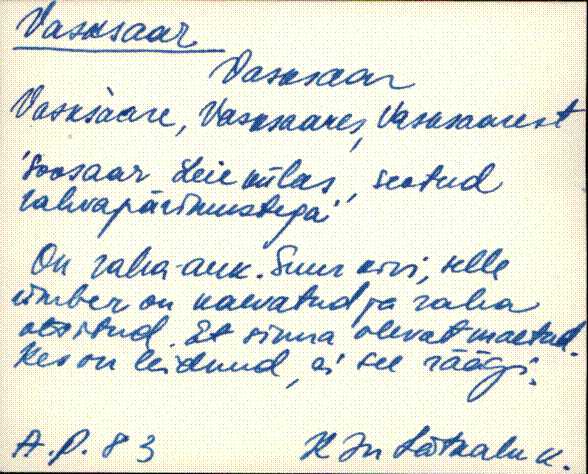 Vasksaar
Vasksaar
Vasksaare, Vasksaares, Vasksaarest
'Soosaar Leie külas, seotud
rahvapärimustega'
On raha-auk. Suur kivi, selle
ümber on kaevatud ja raha
otsitud. Et sinna olevat maetud.
Kes on leidnud, ei see räägi.
A.P. 83
K Jn Lätkalu k.